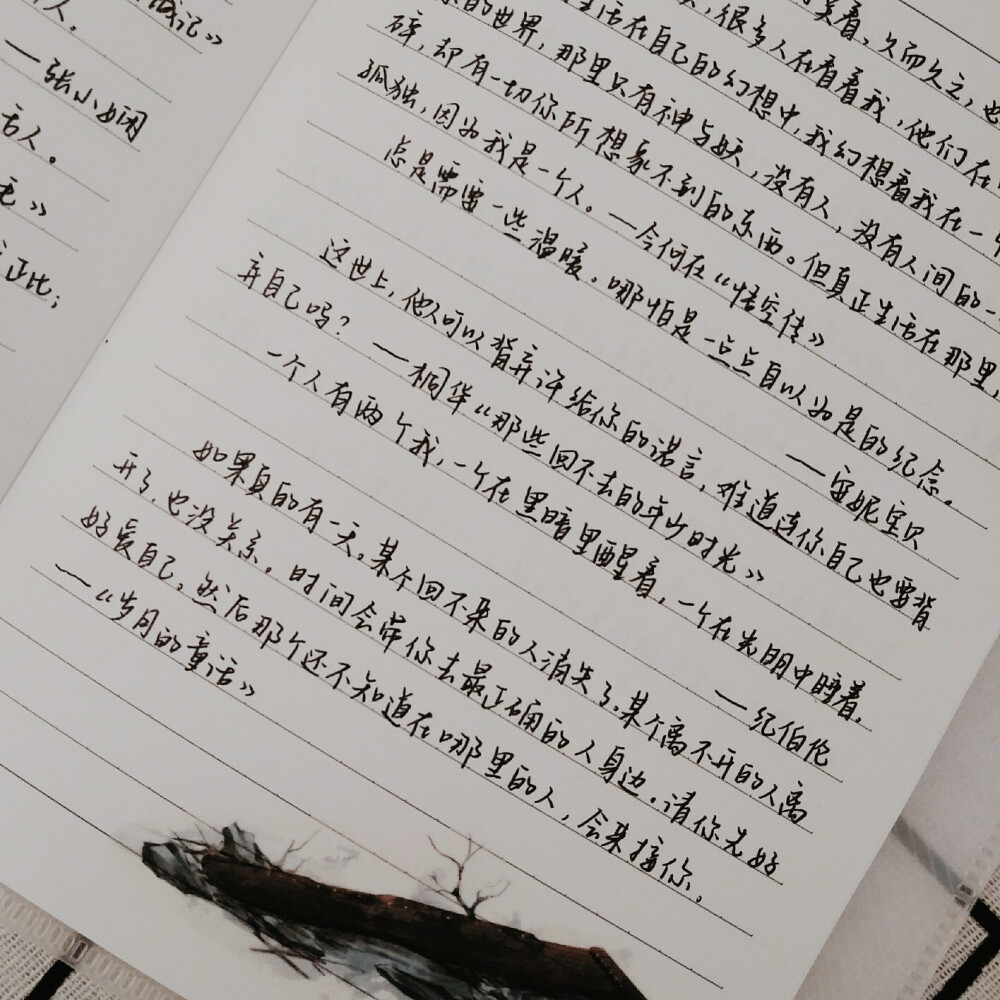 城记》
人。
一张小娴
舌人。
毛》
正比；
笑看，久而久之，也
，很多人在看着我，他们在
生活在自己的幻想中，我幻想着我在一
的世界，那里只有神与妖，没有人，没有人间的一
碎，却有一切你所想象不到的东西。但真正生活在那里，
孤独，因为我是一个人。—今何在《悟空传》
总是需要一些温暖。哪怕是一点点自以为是的纪念。
—安妮宝贝
这世上，他人可以背弃许给你的诺言，难道连你自己也要背
弃自己吗？ —桐华《那些回不去的年少时光》
一个人有两个我，一个在黑暗里醒着，一个在光明中睡着。
—纪伯伦
如果真的有一天。某个回不来的人消失了，某个离不开的人离
开了，也没关系。时间会带你去最正确的人身边。请你先好
好爱自己，然后那个还不知道在哪里的人，会来接你。
—《岁月的童话》